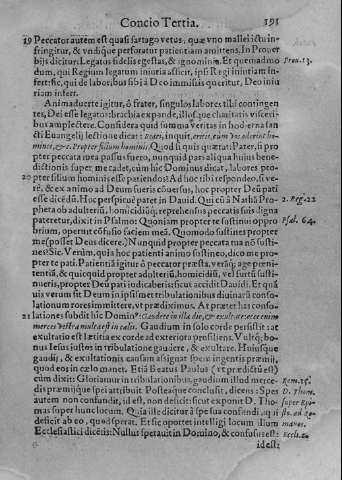 Concio Tertia. 191
19 Peccator autem est quasi sartago vetus, quæ vno mallei ictu in-
fringitur, & vndique perforatur patientiam amittens. In Prouer
bijs dicitur: Legatus fidelis egestas, & ignominia. Et quemadmo Prou. 13.
dum, qui Regium legatum iniuria afficit, ipsi Regi iniuriam in-
fert: sic, qui de laboribus sibi à Deo immissis queritur, Deo iniu
riam infert.
Animaduerte igitur, ô frater, singulos labores tibi contingen
tes, Dei esse legatos: brachia expande, illosque charitatis visceri-
bus amplectere. Considera quid summa veritas in hodierna san
cti Euangelij lectione dicat: Beati, inquit, eritis, cum vos oderint ho-
mines, &c. Propter filium hominis. Quod si quis quærat: Pater, si pro
pter peccata mea passus fuero, nunquid pars aliqua huius bene-
dictionis super me cadet, cùm hic Dominus dicat, labores pro-
20 pter filium hominis esse patiendos? Ad hoc tibi respondeo, si ve-
rè, & ex animo ad Deum fueris cõuersus, hoc propter Deũ pati
esse dicẽdũ. Hoc perspicuè patet in Dauid. Qui cũ à Nathã Pro- 2. Reg. 12
pheta ob adulteriũ, & homicidiũq; reprehensus peccatis suis digna
pateretur, dixit in Psalmo: Quoniam propter te sustinui oppro Psal. 64.
brium, operuit cõfusio faciem meã. Quomodo sustines propter
me (posset Deus dicere.) Nunquid propter peccata tua nõ susti-
nes? Sic. Verùm, quia hoc patienti animo sustineo, dico me pro-
pter te pati. Patientiã igitur ô peccator præsta, verãq; age pœni-
tentiã, & quicquid propter adulteriũ, homicidiũ, vel furtũ susti-
nueris, propter Deũ pati iudicaberis: sicut accidit Dauidi. Et quã
uis verum sit Deum in ipsismet tribulationibus diuinarũ conso-
lationum rores immittere, vt prædiximus. At præter hæc conso-
21 lationes subdit hic Domin9: Gaudete in illa die, & exultate: ecce enim
merces vestra multa est in cælis. Gaudium in solo corde persistit: at
exultatio est lætitia ex corde ad exteriora prosiliens. Vultq; bo-
nus Iesus iustos in tribulatione gaudere, & exultare. Huiusque
gaudij, & exultationis causam assignat spem ingentis præmij,
quod eos in cælo manet. Etiã Beatus Paulus (vt prædictũ est)
cùm dixit: Gloriamur in tribulationibus, gaudium illud merce- Rom. 15.
dis præmijque spei attribuit. Posteaque conclusit, dicens: Spes D. Thom.
autem non confundit, id est, non deficit: sicut exponit D. Tho- super Epi
mas super hunc locum. Quia ille dicitur à spe sua confundi, cui sto. ad Ro-
deficit ab eo, quod sperat. Et sic oportet intelligi locum illum manos.
Ecclesiastici dicẽtis: Nullus sperauit in Domino, & confusus est: Eccli. 2.
id est: